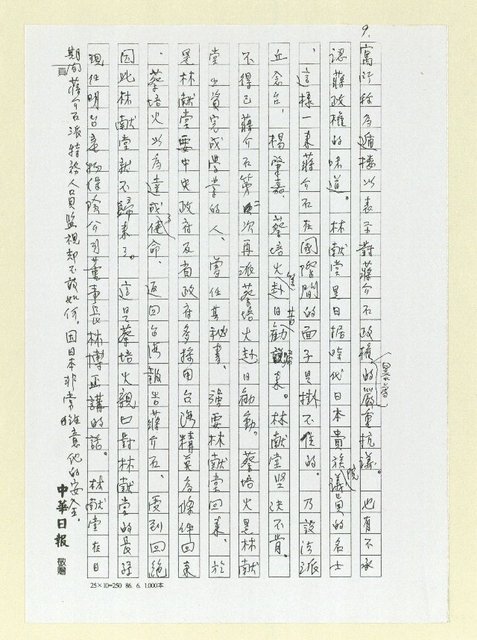 9.
寓所称為遁樓以表示對蔣介石政權的嚴重抗議。也有不承
認蔣政權的味道。林獻堂是日据時代日本貴族院議員的名士
，這樣一來蔣介石在國際間的面子是掛不住的。乃設法派
丘念台，楊肇嘉，蔡培火赴日勸說歸來。林献堂堅決不肯。
不得已蔣介石第二次再派蔡培火赴日勸動。蔡培火是林献
堂出資完成學業的人、曾任其秘書。強要林献堂回来。於
是林献堂要中央政府及省政府多採用台湾精英為條件回來
。蔡培火以為達成使命，返回台湾報告蔣介石、受到回絶
因此林献堂就不歸来了。這是蔡培火親口對林献堂的長孫
現任明台產物保險公司董事長林博正講的話。林献堂在日
期间蔣介石派特務人員監視却不敢如何，因日本非常注意他的安全。
中華日報 敬贈
25×10=250 86. 6. 1,000本